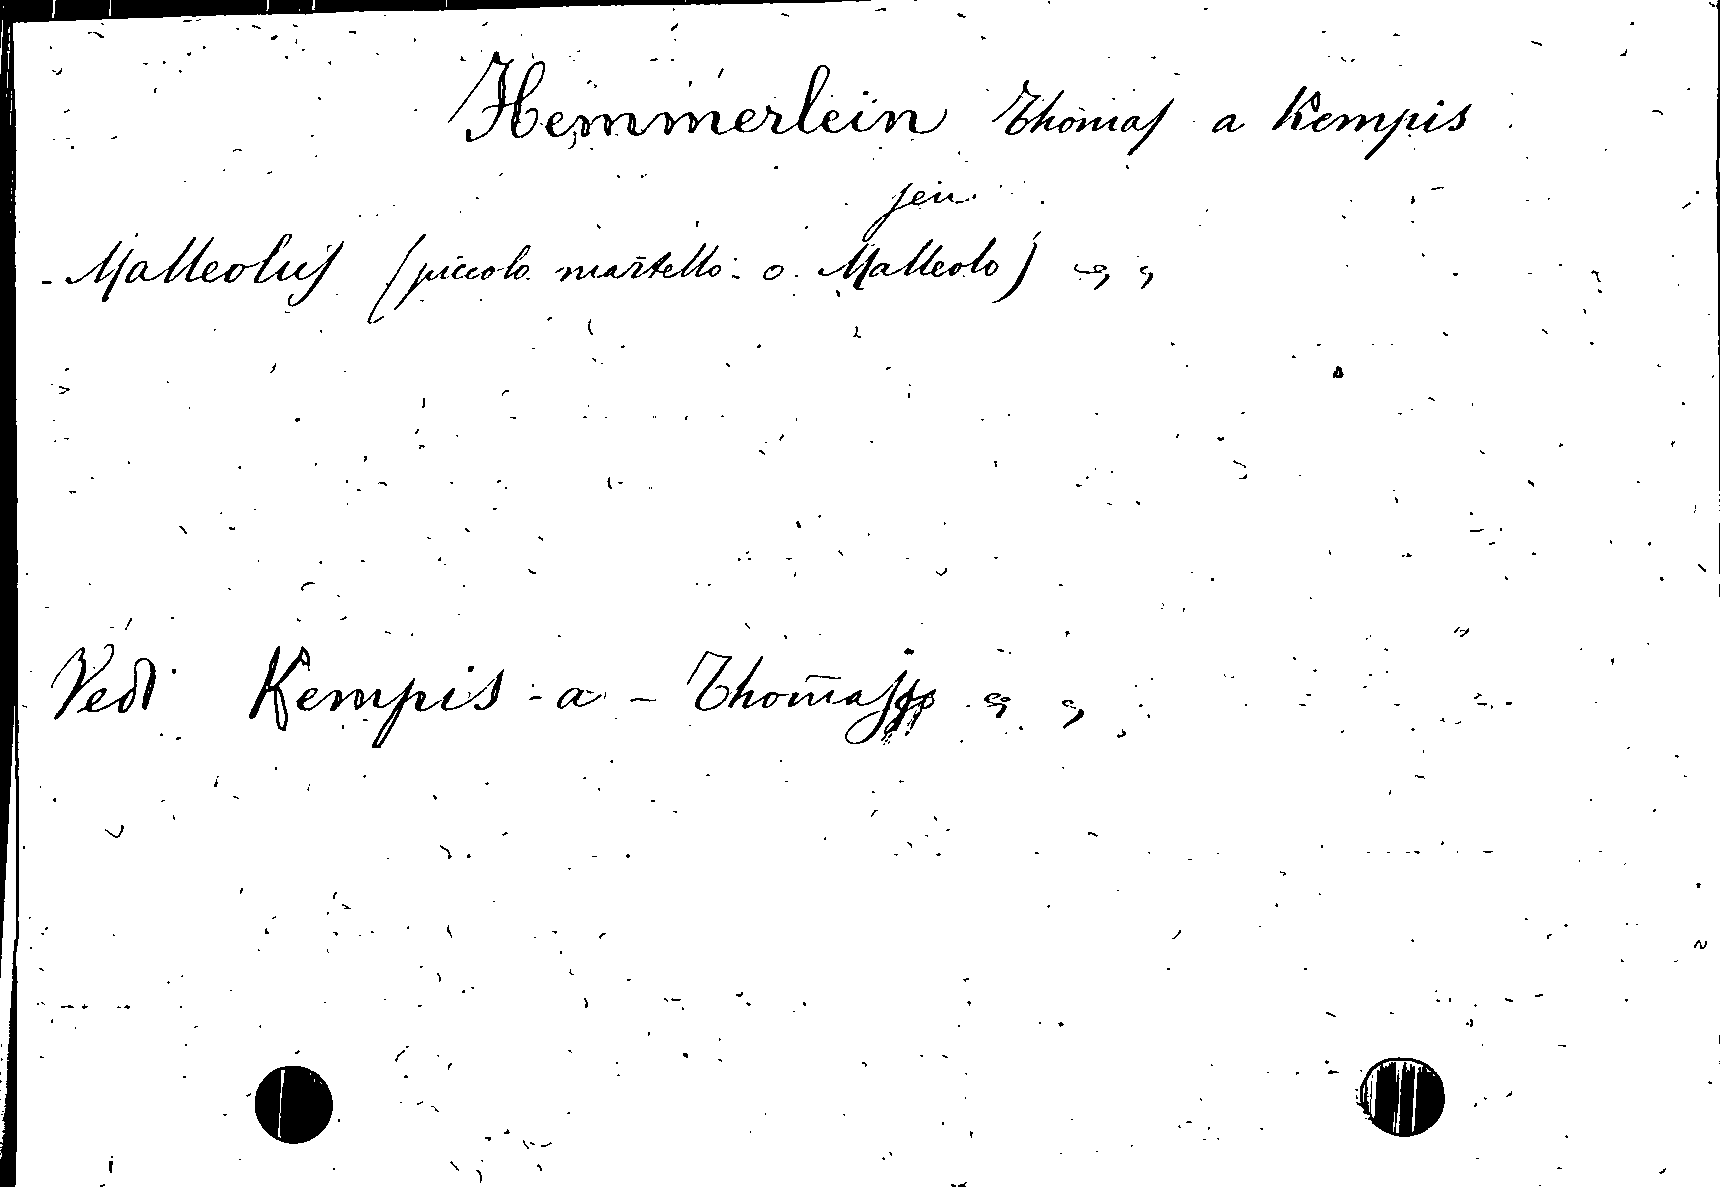 Hemmerlein Thomas a Kempis
seu
Malleolus (piccolo martello o Malleolo) " "
Vedi Kempis - a - Thomas " "